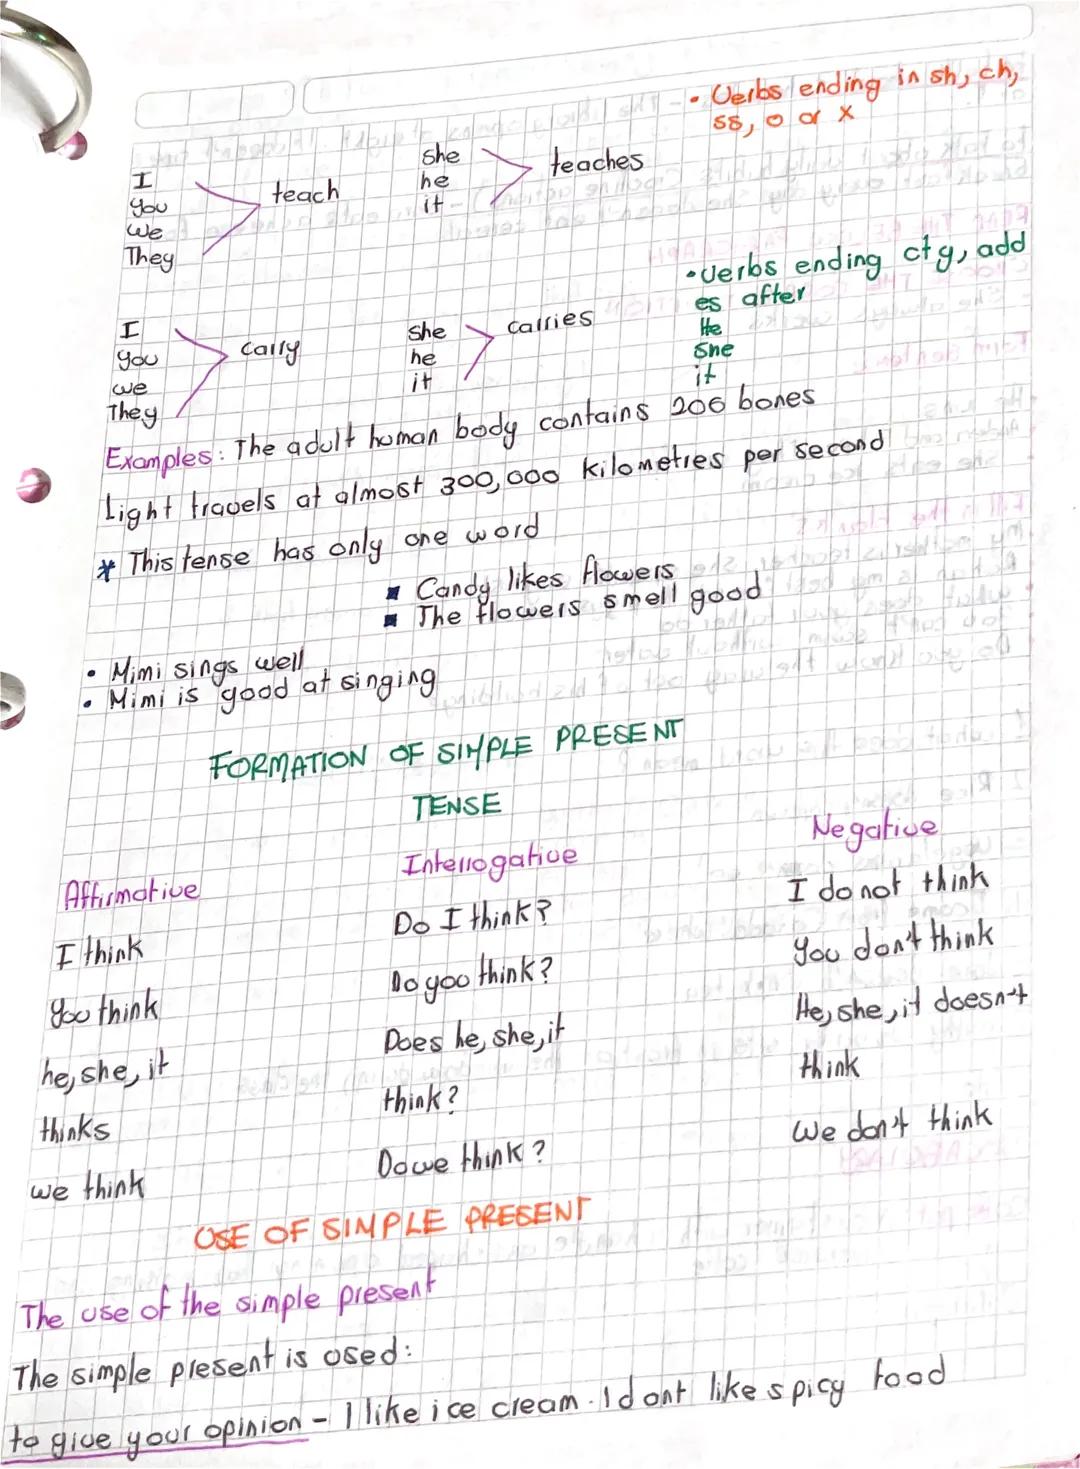 • Verbs ending in sh, ch,
ss, o or x
I
you
we
They
teach
she
he
it
teaches
• verbs ending cty, add
es after
He
She
it
I
you
we
They
carry
she
he
it
carries
Examples: The adult human body contains 206 bones
Light travels at almost 300,000 kilometres per second
* This tense has only one word
▪ Candy likes flowers
▪ The flowers smell good
• Mimi sings well
• Mimi is good at singing
FORMATION OF SIMPLE PRESENT
TENSE
Affirmative
I think
you think
he, she, it
thinks
we think
Interrogative
Do I think?
Do you think?
Does he, she, it
think?
Do we think?
Negative
I do not think
you don't think
He, she, it doesn't
think
We don't think
USE OF SIMPLE PRESENT
The use of the simple present
The simple present is used:
to give your opinion - I like ice cream. I dont like spicy food